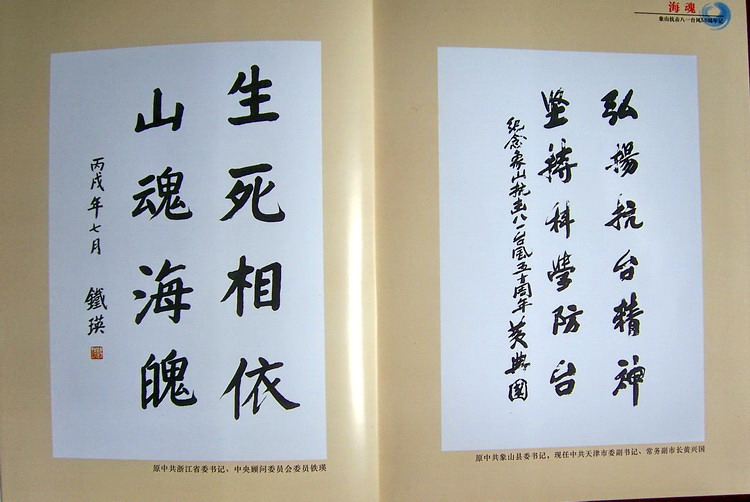 生死相依
山魂海魄
丙戌年七月 鐵瑛
原中共浙江省委书记、中央顾问委员会委员铁瑛
海魂
象山抗击八一台风50周年记
弘揚抗台精神
坚持科學防台
纪念象山抗击八一台风五十周年 黄興國
原中共象山县委书记，现任中共天津市委副书记、常务副市长黄兴国